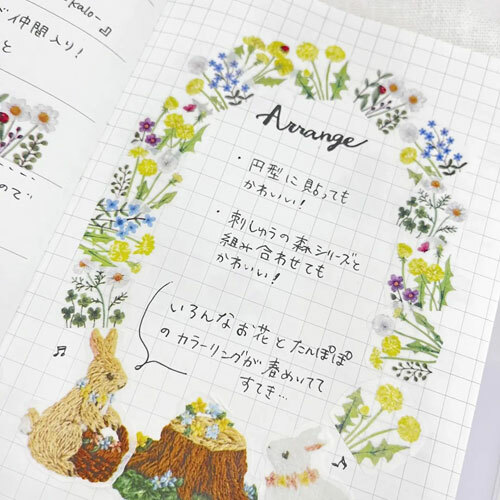 -Kalo-』
仲間入り!
と
ので
Arrange
・円型に貼っても
かわいい!
・刺しゅうの森シリーズと
組み合わせても
かわいい!
いろんなお花とたんぽぽ
のカラーリングが春めいてて
すてき…